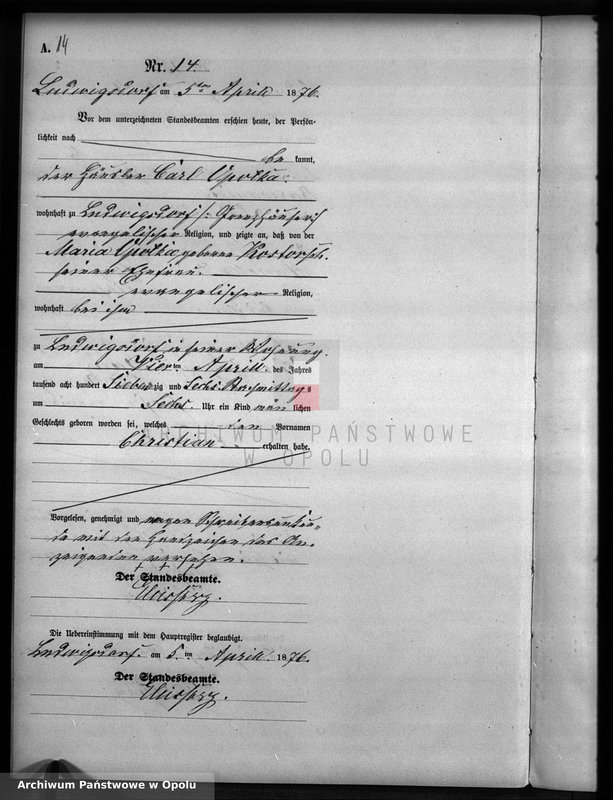 A. 14
Nr. 14.
Ludwigsdorf am 5ten Aprill 1876.
Vor dem unterzeichneten Standesbeamten erschien heute, der Persön-
lichkeit nach
be kannt,
der Häusler Carl
wohnhaft zu Ludwigsdorf
evangelischer Religion, und zeigte an, daß von der
Maria geborne
seiner Ehefrau.
Evangelischer Religion,
wohnhaft bei ihm
zu Ludwigsdorf in seiner Wohnung.
am Vier ten Aprill des Jahres
tausend acht hundert Sieben zig und Sechs Nachmittag s
um Sechs Uhr ein Kind män lichen
Geschlechts geboren worden sei, welches den Vornamen
Christian erhalten habe.
ARCHIWUM PAŃSTWOWE
W OPOLU
Vorgelesen, genehmigt und wegen Schreibensunkun=
de mit den Handzeichen des An=
zeigenden versehen.
+++
Der Standesbeamte.
Die Uebereinstimmung mit dem Hauptregister beglaubigt.
Ludwigsdorf am 5. ten Aprill 1876.
Der Standesbeamte.
Archiwum Państwowe w Opolu